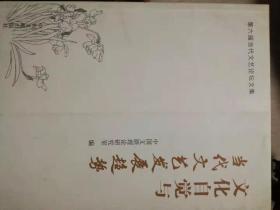 第六届当代文艺论坛文集
文化自觉与
当代文艺发展趋势
中国文联理论研究室 编